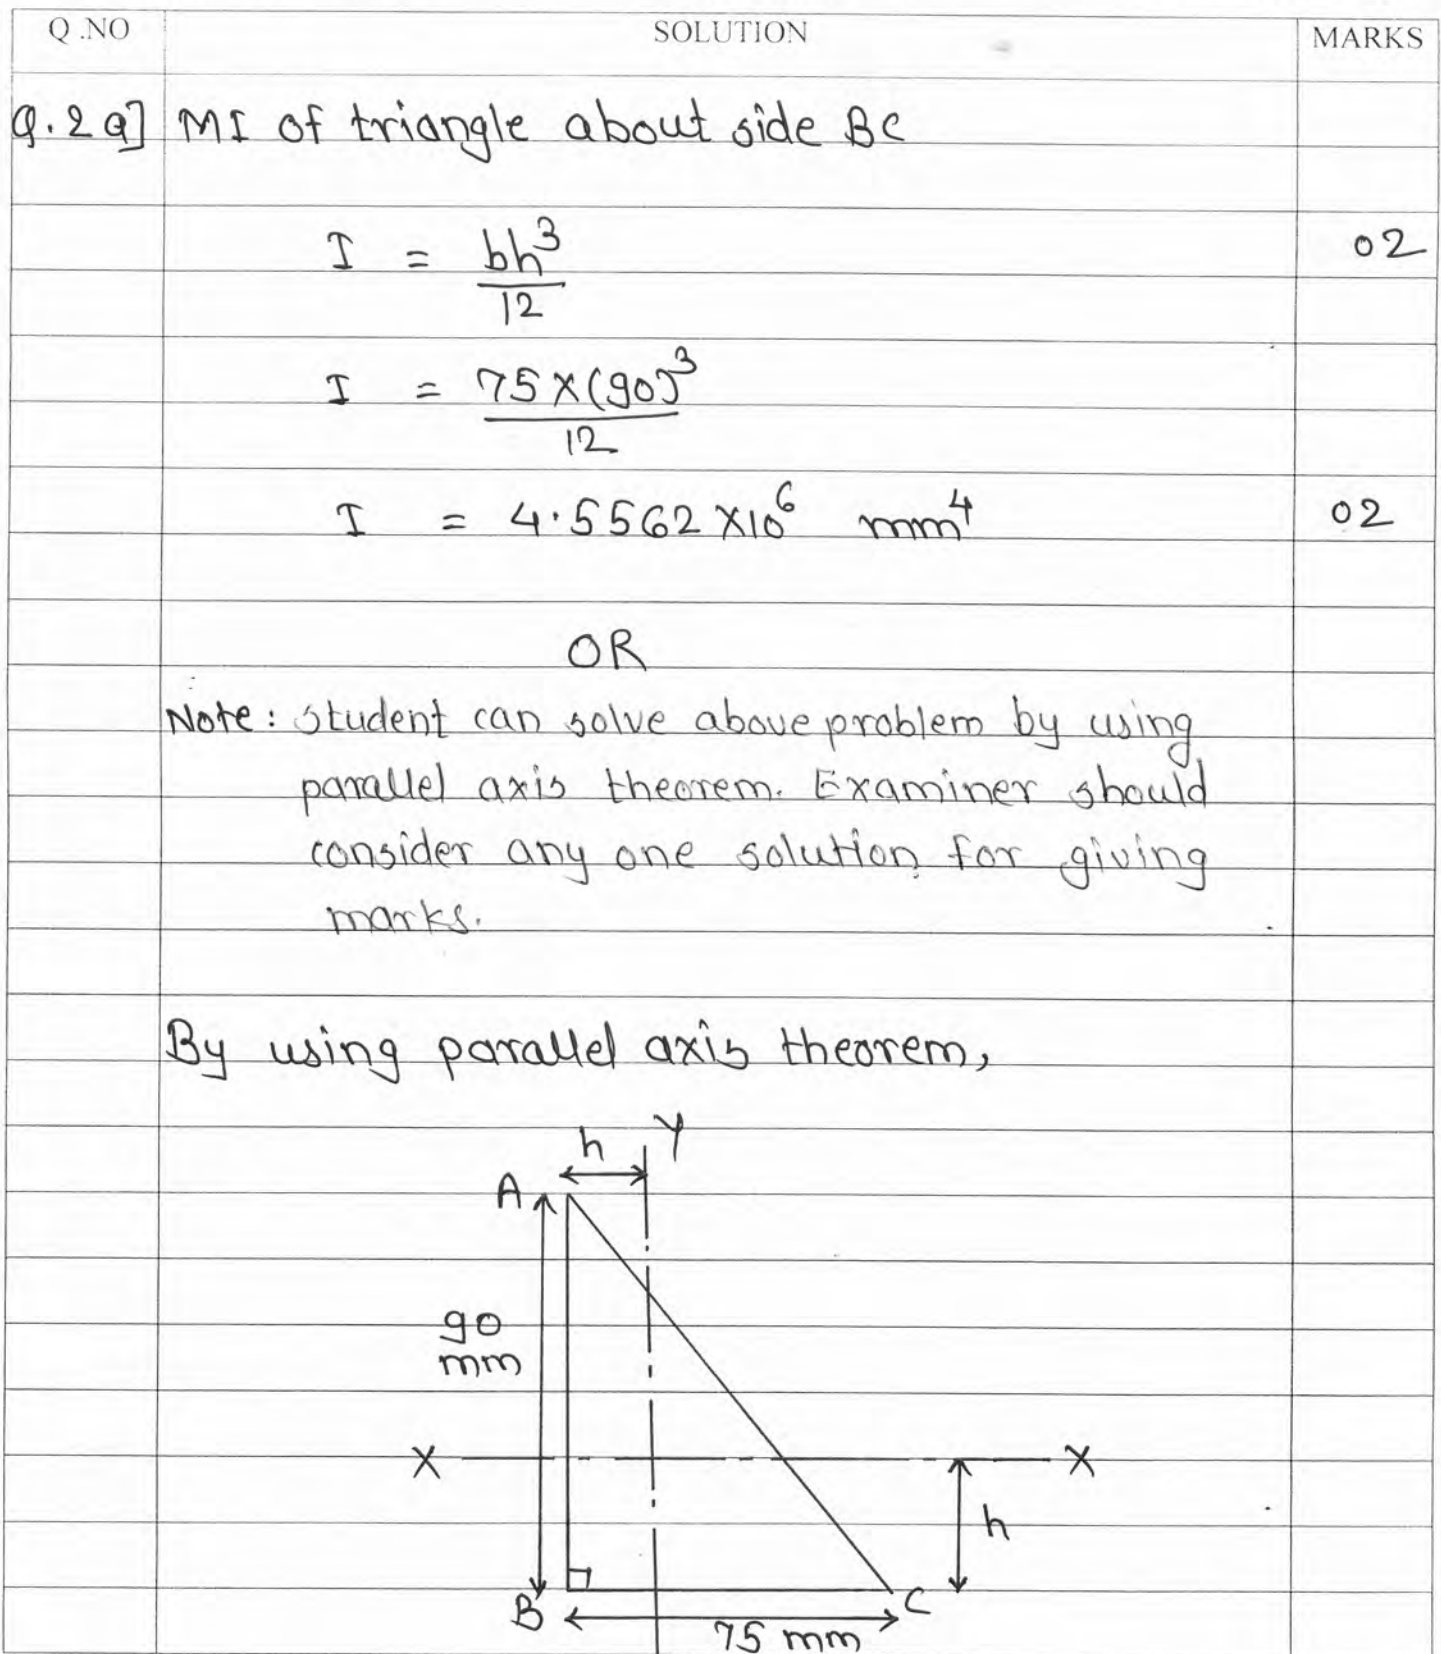 Q .NO SOLUTION MARKS
Q.2 a] MI of triangle about side BC
I = bh³/12 02
I = 75×(90)³/12
I = 4.5562 ×10⁶ mm⁴ 02
OR
Note: Student can solve above problem by using
parallel axis theorem. Examiner should
consider any one solution for giving
marks.
By using parallel axis theorem,
h Y
A
90
mm
X X
h
B C
75 mm